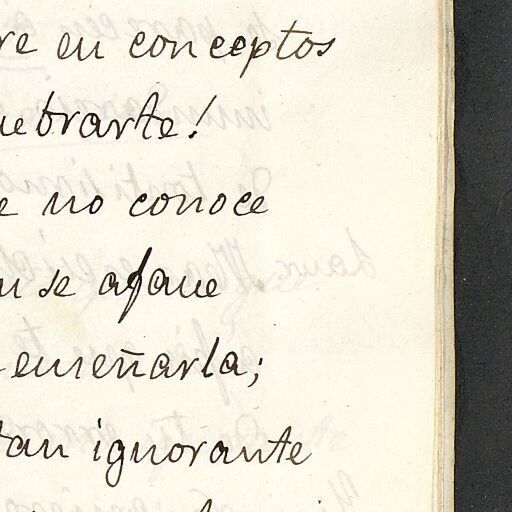 re en conceptos
uebrarte!
e no conoce
n se afane
enseñarla;
tan ignorante